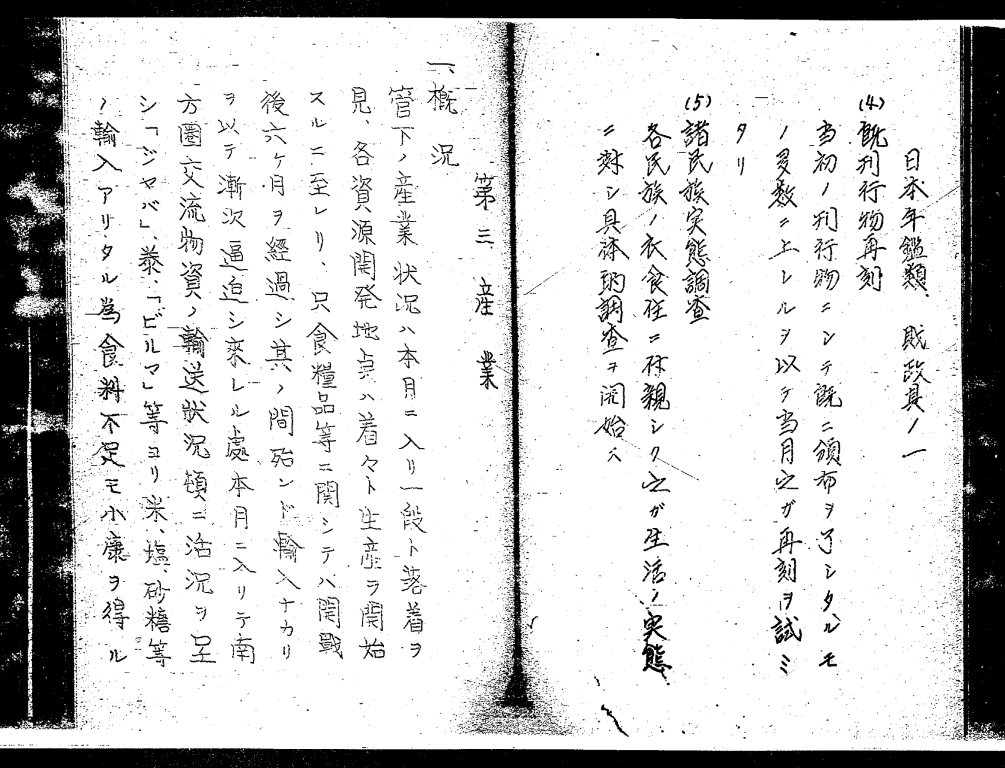 日本年鑑類、財政其ノ一
(4)既刊行物再刻
当初ノ刊行物ニシテ既ニ頒布ヲ了シタルモ
ノ多数ニ上レルヲ以テ当月之ガ再刻ヲ試ミ
タリ
(5)諸民族実態調査
各民族ノ衣食住ニ亦親シク之ガ生活ノ実態
ニ対シ具体的調査ヲ開始ス
第三 産業
一、概況
管下ノ産業状況ハ本月ニ入リ一段ト落着ヲ
見、各資源開発地点ハ着々ト生産ヲ開始
スルニ至レリ、只食糧品等ニ関シテハ開戦
後六ケ月ヲ経過シ其ノ間殆ンド輸入ナカリ
ヲ以テ漸次逼迫シ来レル處本月ニ入リテ南
方圏交流物資ノ輸送状況頓ニ活況ヲ呈
シ「ジャバ」、泰、「ビルマ」等ヨリ米、塩、砂糖等
ノ輸入アリタル為食料不足モ小康ヲ得ル